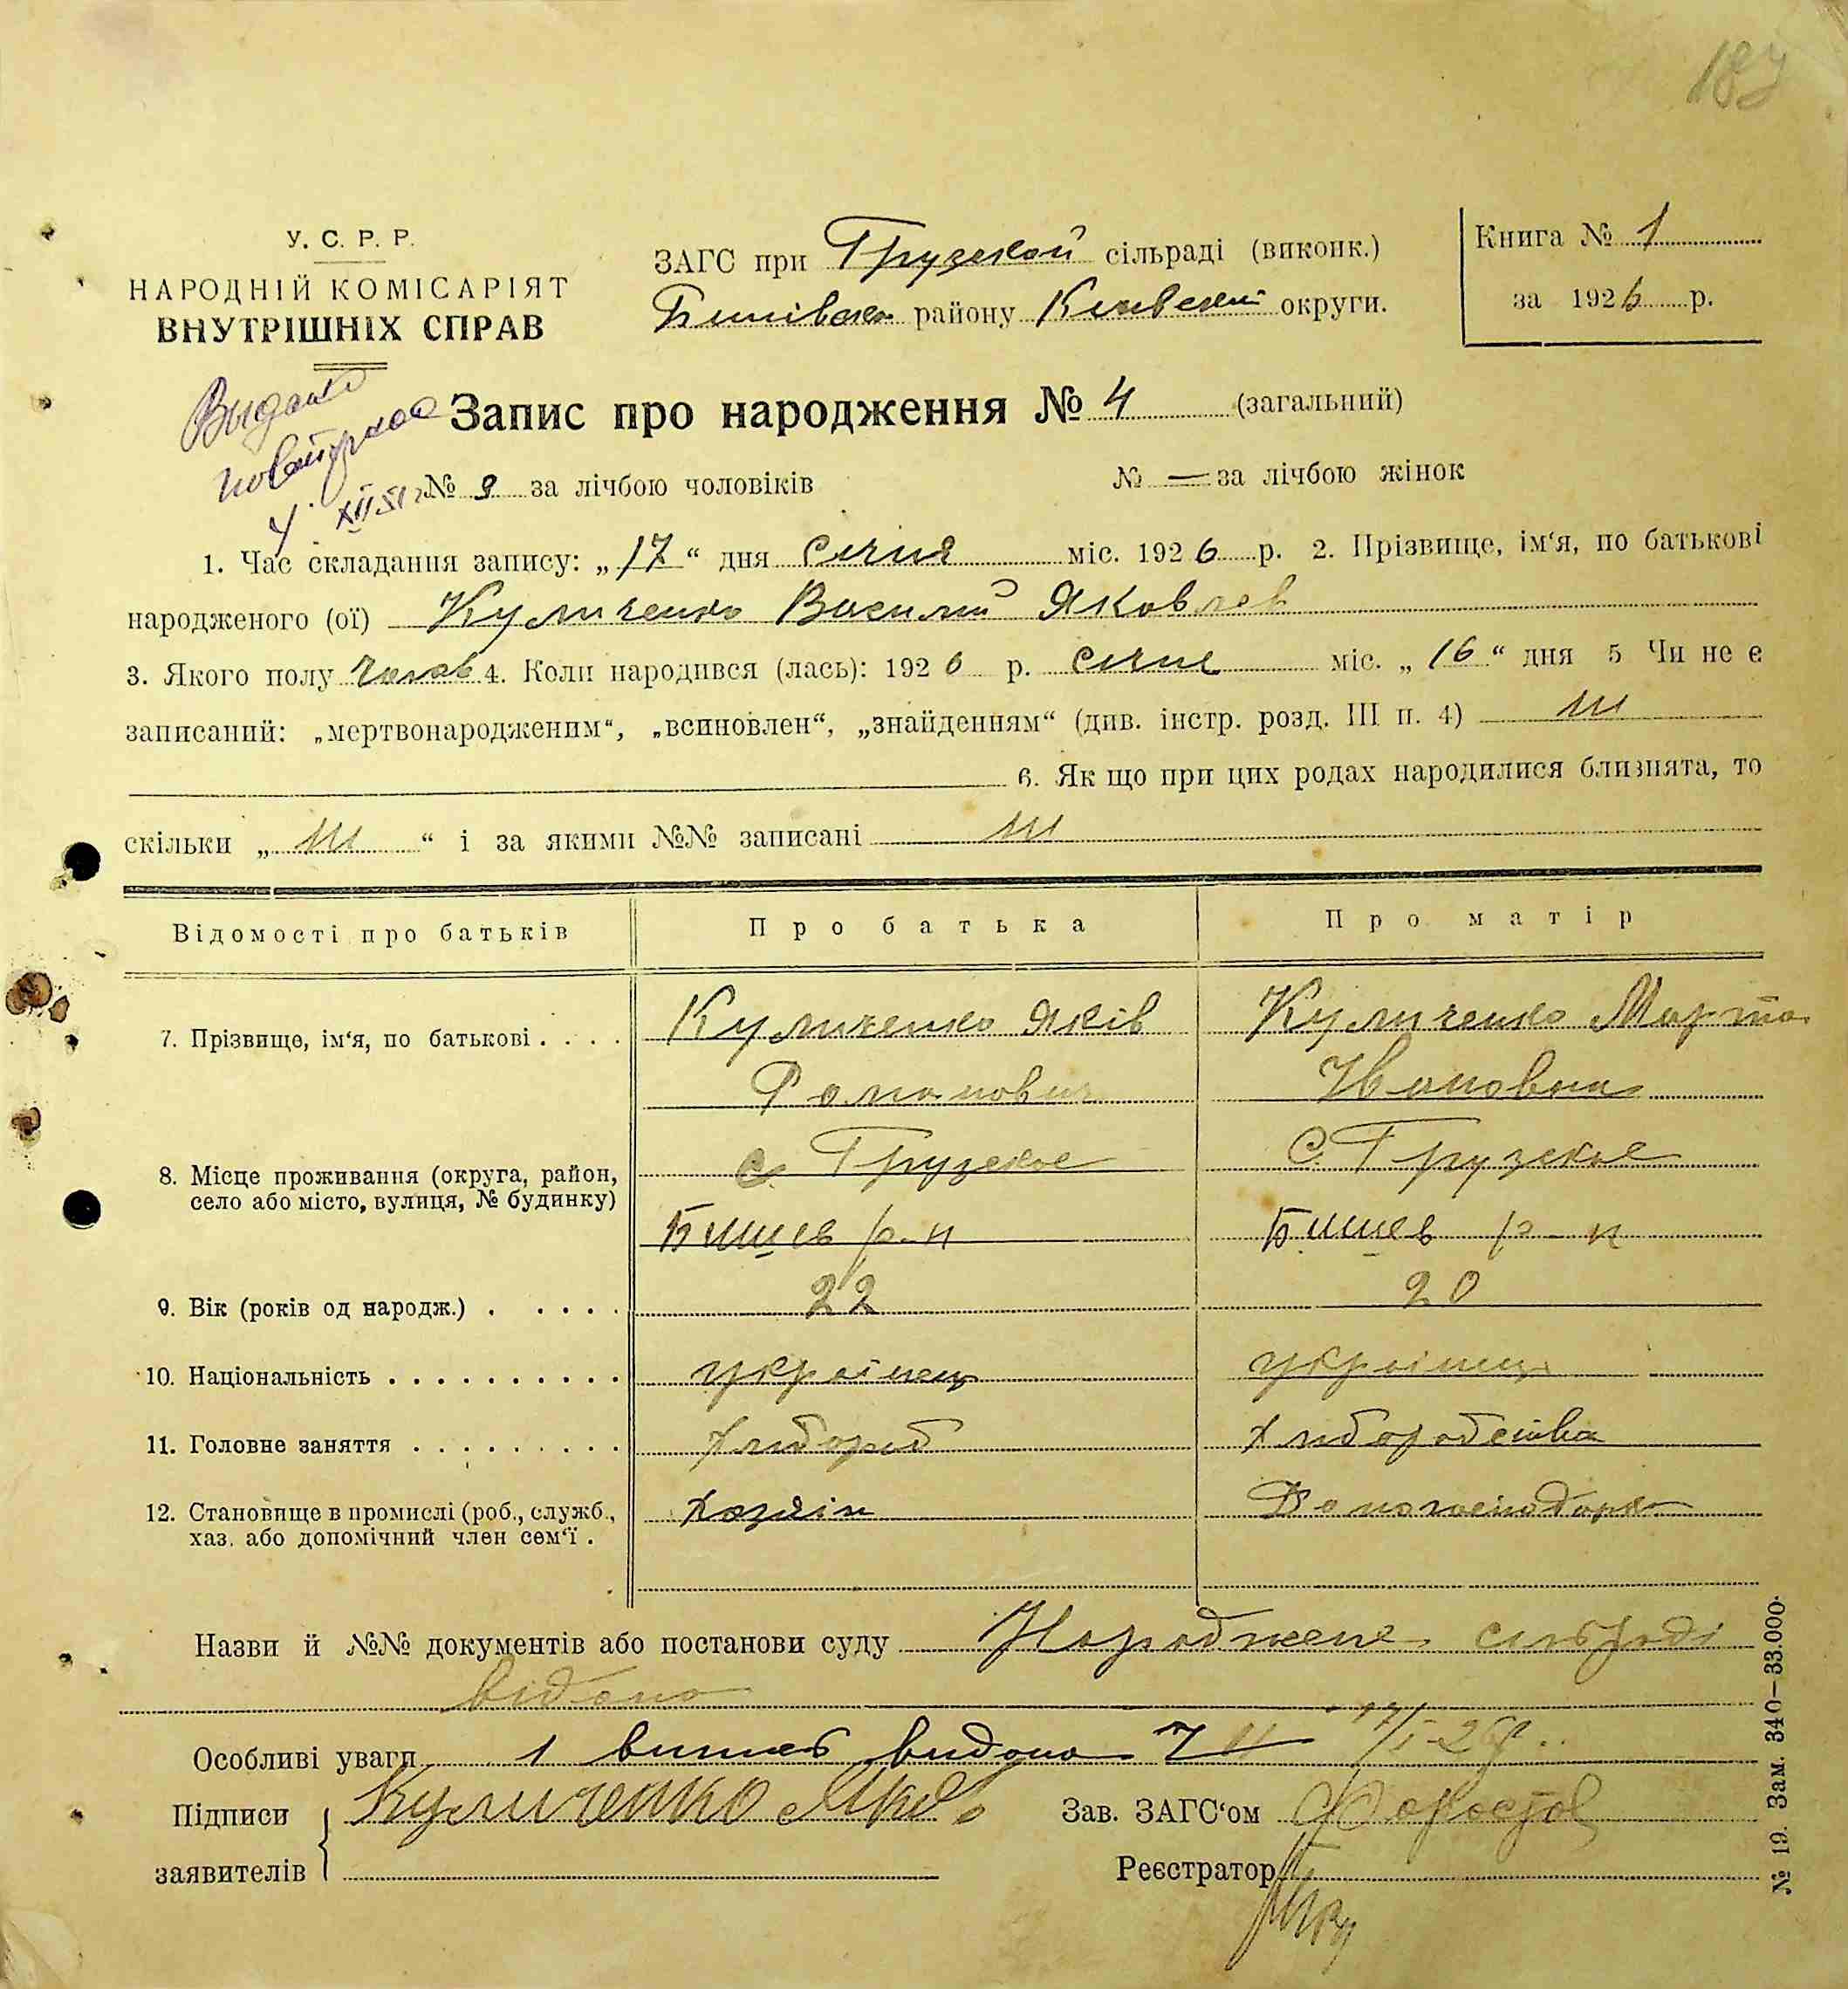 187
У. С. Р. Р.
НАРОДНІЙ КОМІСАРІЯТ
ВНУТРІШНІХ СПРАВ
ЗАГС при Грузской сільраді (виконк.)
району Київської округи.
Книга № 1
за 1926 р.
Выдано
повторное
XII 51 г.
Запис про народження № 4 (загальний)
№ за лічбою чоловіків
№ — за лічбою жінок
1. Час складання запису: „17“ дня січня міс. 1926 р. 2. Прізвище, ім‘я, по батькові
народженого (ої) Куличенко Василий Яковлев
3. Якого полу чолов 4. Коли народився (лась): 1926 р. січня міс. „16“ дня 5 Чи не є
записаний: „мертвонародженим“, „всиновлен“, „знайденням“ (див. інстр. розд. III п. 4) ні
6. Як що при цих родах народилися близнята, то
скільки „ ні “ і за якими №№ записані ні
Відомості про батьків
Про батька
Про матір
7. Прізвище, ім‘я, по батькові . . . .
Куличенко Яків
Романович
Куличенко Марта
8. Місце проживання (округа, район,
село або місто, вулиця, № будинку)
с. Грузское
Бишев р-н
С. Грузское
Бишев р-н
9. Вік (років од народж.) . . . . .
22
20
10. Національність . . . . . . . . . .
українец
українец
11. Головне заняття . . . . . . . . .
Хлібороб
Хліборобства
12. Становище в промислі (роб., служб.,
хаз. або допомічний член сем‘ї .
Хозяін
Домогосподарка
Назви й №№ документів або постанови суду Народжене сільраді
відомо
Особливі уваги 1 выпись видано
Підписи
заявителів
Куличенко Яков
Зав. ЗАГС‘ом
Реєстратор
№ 19. Зам. 340—33.000.